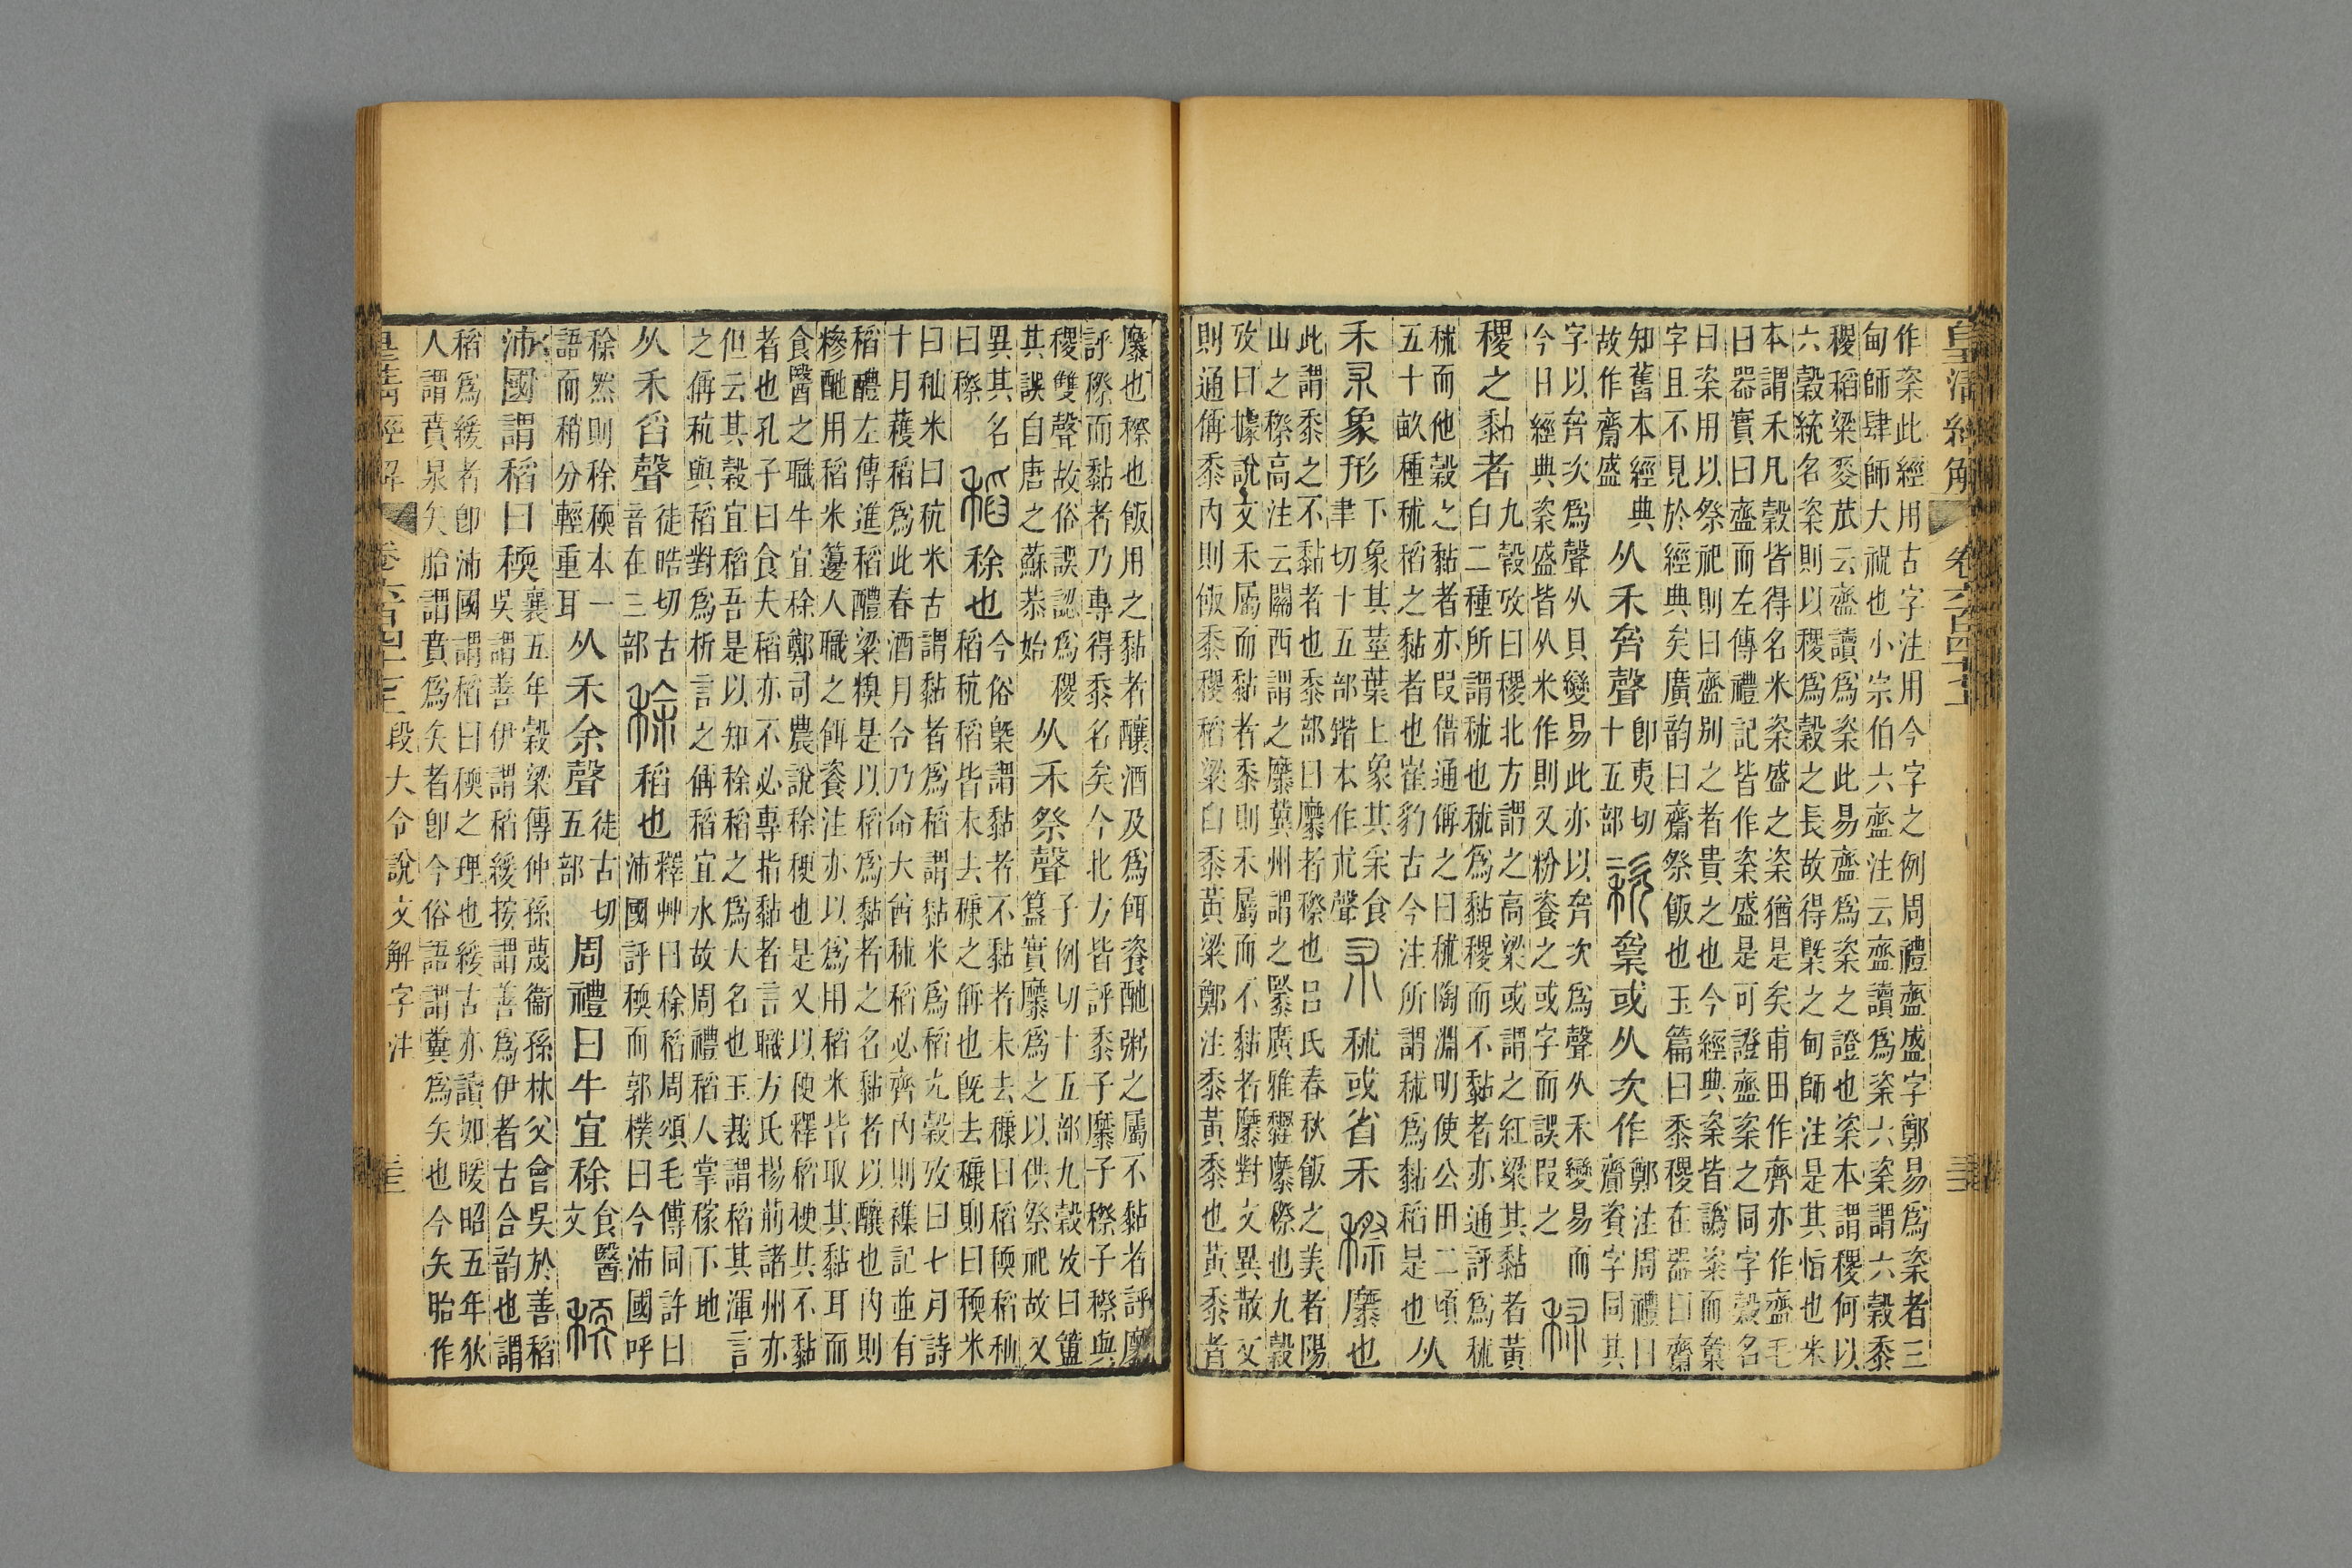 皇清經解 卷六百四十七
作粢此經用古字注用今字之例周禮齍盛字鄭易爲粢者三
甸師肆師大祝也小宗伯六齍注云齍讀爲粢六粢謂六穀黍
稷稻粱麥苽云齍讀爲粢此易齍爲粢之證也粢本謂稷何以
六穀統名粢則以稷爲穀之長故得槩之甸師注是其恉也米
本謂禾凡穀皆得名米粢盛之粢猶是矣甫田作齊亦作齍毛
曰器實曰齍而左傳禮記皆作粢盛是可證齍粢之同字穀名
曰粢用以祭祀則曰齍別之者貴之也今經典粢皆譌粢而
字且不見於經典矣廣韵曰齋祭飯也玉篇曰黍稷在器曰齋
知舊本經典
故作齋盛
从禾聲
卽夷切
十五部
或从次作
鄭注周禮曰
齎資字同其
字以次爲聲从貝變易此亦以次爲聲从禾變易而
今日經典粢盛皆从米作則又粉餈之或字而誤叚之
秫
稷之黏者
九穀攷曰稷北方謂之高粱或謂之紅粱其黏者黃
白二種所謂秫也秫爲黏稷而不黏者亦通評爲秫
秫而他穀之黏者亦叚借通偁之曰秫陶淵明使公田二頃
五十畝種秫稻之黏者也崔豹古今注所謂秫爲黏稻是也
从
禾朮象形
下象其莖葉上象其采食
聿切十五部鍇本作朮聲
朮
秫或省禾
穄
𪎭也
此謂黍之不黏者也黍部曰𪎭者穄也呂氏春秋飯之美者陽
山之穄高注云關西謂之𪎭冀州謂之䵖廣雅䵖𪎭穄也九穀
攷曰據說文禾屬而黏者黍則禾屬而不黏者𪎭對文異散文
則通偁黍內則飯黍稷稻粱白黍黃粱鄭注黍黃黍也黃黍者
𪎭也穄也飯用之黏者釀酒及爲餌餈酏粥之屬不黏者評𪎭
評穄而黏者乃專得黍名矣今北方皆評黍子𪎭子穄子穄與
稷雙聲故俗誤認爲稷
其誤自唐之蘇恭始
从禾祭聲
子例切十五部九穀攷曰簠
簋實𪎭爲之以供祭祀故又
異其名
曰穄
稻
稌也
今俗槩謂黏者不黏者未去穅曰稻稬稻秈
稻秔稻皆未去穅之偁也旣去穅則曰稬米
曰秈米曰秔米古謂黏者爲稻謂黏米爲稻九穀攷曰七月詩
十月穫稻爲此春酒月令乃命大酋秫稻必齊內則襍記並有
稻醴左傳進稻醴粱糗是以稻爲黏者之名黏者以釀也內則
糝酏用稻米籩人職之餌餈注亦以爲用稻米皆取其黏耳而
食醫之職牛宜稌鄭司農說稌稉也是又以稉釋稻稉其不黏
者也孔子曰食夫稻亦不必專指黏者言職方氏揚荊諸州亦
但云其穀宜稻吾是以知稌稻之爲大名也玉裁謂稻其渾言
之偁秔與稻對爲析言之偁稻宜水故周禮稻人掌稼下地
从禾舀聲
徒晧切古
音在三部
稌
稻也
釋艸曰稌稻周頌毛傳同許曰
沛國評稬而郭樸曰今沛國呼
稌然則稌稬本一
語而稍分輕重耳
从禾余聲
徒古切
五部
周禮曰牛宜稌
食醫
文
稬
沛國謂稻曰稬
襄五年穀梁傳仲孫蔑衞孫林父會吳於善稻
吳謂善伊謂稻緩按謂善爲伊者古合韵也謂
稻爲緩者卽沛國謂稻曰稬之理也緩古亦讀如暖昭五年狄
人謂賁泉矢胎謂賁爲矢者卽今俗語謂糞爲矢也今矢胎作
皇清經解 卷六百四十七 段大令說文解字注